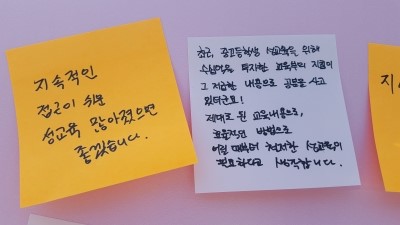 지속적인
접근이 쉬운
성교육 많아졌으면
좋겠습니다.
최근, 중고등학생 성교육을 위해
수억을 투자한 교육부의 지침이
그 저급한 내용으로 공분을 사고
있더군요!
제대로 된 교육내용으로,
효율적인 방법으로
어릴 때부터 철저한 성교육이
필요하다고 생각합니다.
지